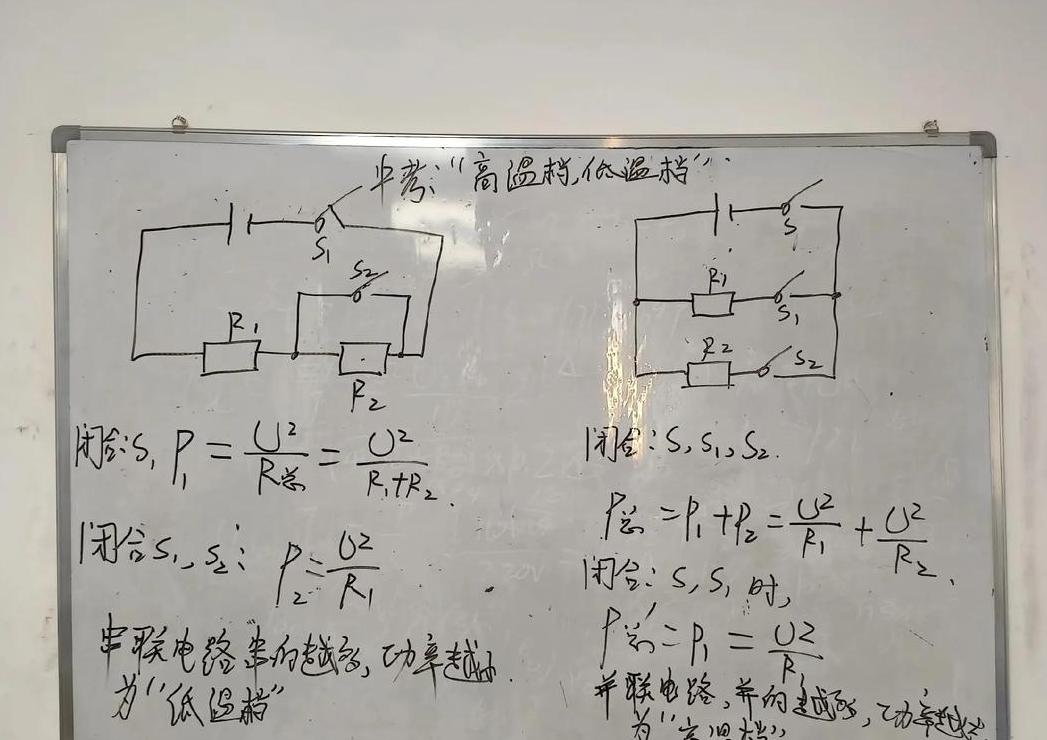 中考:“高温档,低温档”.
S₁
S₂
R₁
R₂
闭合:S₁ P₁ = U²/R总 = U²/(R₁+R₂).
闭合S₁,S₂: P₂ = U²/R₁
串联电路串的越多,功率越小
为“低温档”
S
R₁
S₁
R₂
S₂
闭合:S,S₁,S₂.
P总 = P₁ + P₂ = U²/R₁ + U²/R₂.
闭合:S,S₁时,
P总′ = P₁ = U²/R₁
并联电路,并的越多,功率越大
为“高温档”